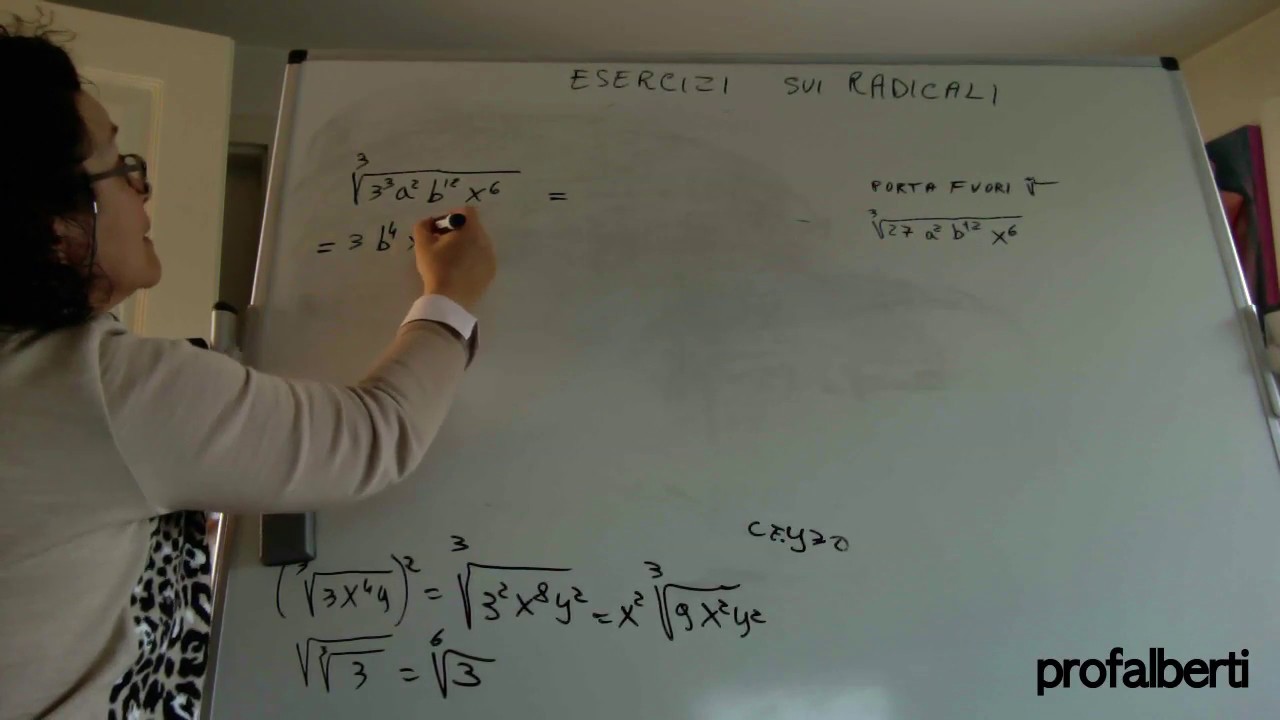 ESERCIZI SUI RADICALI
∛(3³a²b¹²x⁶) =
= 3 b⁴
PORTA FUORI √
∛(27 a² b¹² x⁶)
(∛(3x⁴y))² = ∛(3²x⁸y²) = x² ∛(9x²y²)
√(∛3) = ⁶√3
profalberti